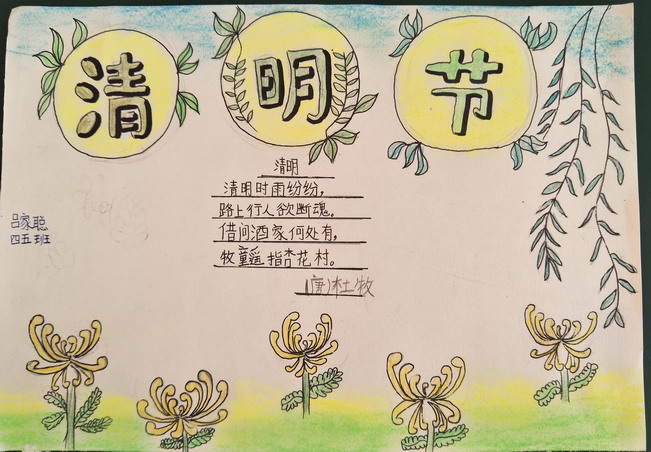 清明节
清明
清明时雨纷纷，
路上行人欲断魂。
借问酒家何处有，
牧童遥指杏花村。
(唐)杜牧
吕家聪
四五班